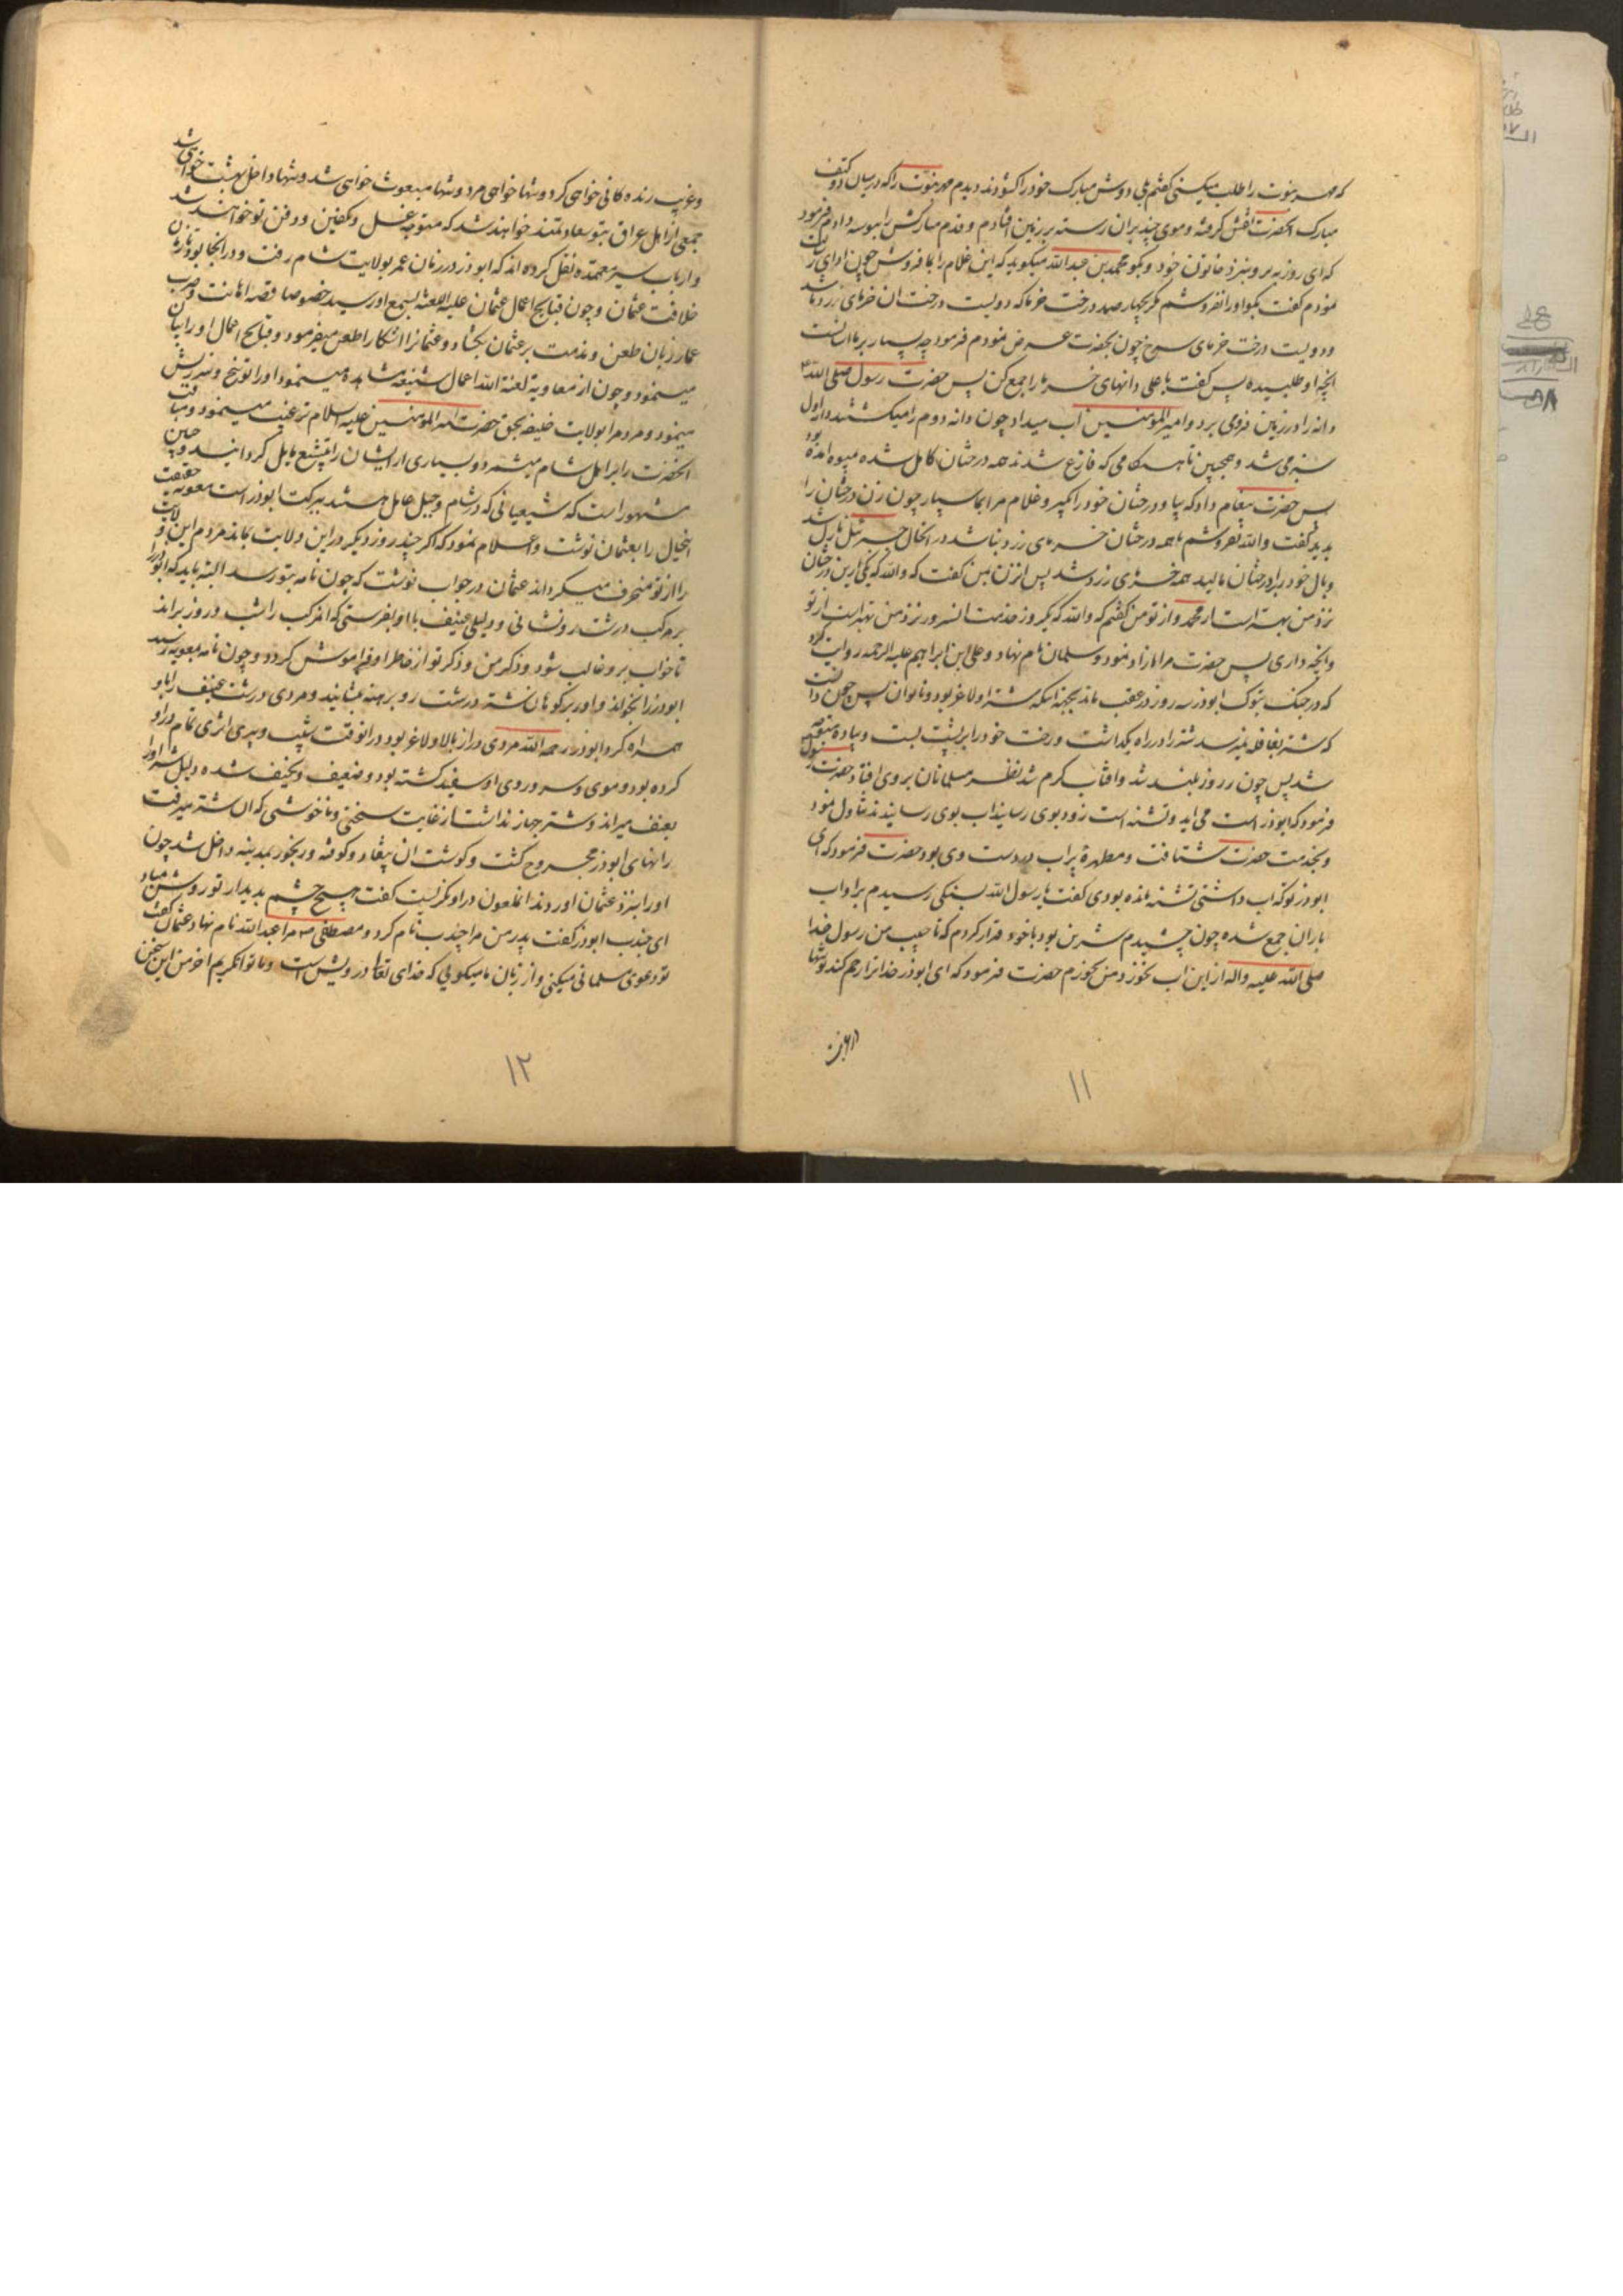 که مهر نبوت را طلب میکنی گفتم بلی دوش مبارک خود را گشودند دیدم مهر نبوت را که در میان دو کتف
مبارک آنحضرت نقش گرفته و موی چند بران رسته بر زمین افتادم و قدم مبارکش را بوسه دادم فرمود
که ای روزبه برو بنزد خاتون خود و بگو محمد بن عبدالله میگوید که این غلام را بما فروش چون ادای رسالت
نمودم گفت بگو او را نفروشم مگر بچهار صد درخت خرما که دویست درخت ان خرمای زرد باشد
و دویست درخت خرمای سرخ چون بحضرت عرض نمودم فرمود چه بسیار بر ما اسانست
انچه او طلبیده پس گفت یا علی دانهای خرما را جمع کن پس حضرت رسول صلی الله
دانه را در زمین فرو می برد و امیرالمؤمنین آب میداد چون دانه دوم را میکشتند دانه اول
سبز می شد و همچنین تا هنگامی که فارغ شدند همه درختان کامل شده میوه امده بود
پس حضرت پیغام داد که بیا و درختان خود را بگیر و غلام مرا بما سپار چون زن درختان را
بدید گفت والله نفروشم تا همه درختان خرمای زرد نباشد در انحال جبرئیل نازل شد
و بال خود را بر درختان مالید همه خرمای زرد شد پس انزن بمن گفت که والله که یکی ازین درختان
نزد من بهتر است از محمد و از تو من گفتم که والله که یک روز خدمت انسرور نزد من بهتر است از تو
و انچه داری پس حضرت مرا ازاد نمود و سلمان نام نهاد و علی ابن ابراهیم علیه الرحمه روایت کرد
که در جنگ تبوک ابوذر سه روز در عقب ماند بجهة انکه شتر او لاغر بود و ناتوان پس چون دانست
که شتر بقافله نمیرسد شتر را در راه بگذاشت و رخت خود را بر پشت بست و پیاده متوجه
شد پس چون روز بلند شد و افتاب گرم شد نظر مسلمانان بر وی افتاد حضرت رسول
فرمود که ابوذر است می اید و تشنه است زود بوی رسانید اب بوی رسانیدند تناول نمود
و بخدمت حضرت شتافت و مطهرهٔ پر اب در دست وی بود حضرت فرمود که ای
ابوذر تو که اب داشتی تشنه مانده بودی گفت یا رسول الله بسنگی رسیدم بر او اب
باران جمع شده چون چشیدم شیرین بود با خود قرار کردم که تا حبیب من رسول خدا
صلی الله علیه واله از این اب نخورد من نخورم حضرت فرمود که ای ابوذر خدا ترا رحم کند تو تنها
۱۱
و غریب زنده کانی خواهی کرد و تنها خواهی مرد و تنها مبعوث خواهی شد و تنها داخل بهشت خواهی شد
جمعی از اهل عراق بتو سعادتمند خواهند شد که متوجه غسل و تکفین و دفن تو خواهند شد
و ارباب سیر معتمده نقل کرده اند که ابوذر در زمان عمر بولایت شام رفت و در انجا بود تا زمان
خلافت عثمان و چون قبایح اعمال عثمان علیه اللعنه بسمع او رسید خصوصا قصه اهانت و ضرب
عمار زبان طعن و مذمت بر عثمان بگشاد و عثمانرا اشکارا طعن میفرمود و قبایح اعمال او را بیان
مینمود و چون از معاویه لعنة الله اعمال شنیعه مشاهده مینمود او را توبیخ و سرزنش
مینمود و مردم را بولایت خلیفه بحق حضرت امیرالمؤمنین علیه السلام ترغیب مینمود و مناقب
آنحضرت را بر اهل شام میشمرد و بسیاری از ایشان را بتشیع مایل گردانید و چنین
مشهور است که شیعیانی که در شام و جبل عامل هستند ببرکت ابوذر است معویه حقیقت
اینحال را بعثمان نوشت و اعلام نمود که اگر چند روز دیگر در این ولایت بماند مردم این ولایت
را از تو منحرف میگرداند عثمان در جواب نوشت که چون نامه بتو رسد البته باید که ابوذر را
بر مرکب درشت رو نشانی و دلیلی عنیف با او بفرستی که انمرکب را شب و روز براند
تا خواب بر او غالب شود و ذکر من و ذکر تو از خاطر او فراموش گردد و چون نامه بمعویه رسید
ابوذر را بخواند و او را بر کوهان شتر درشت رو برهنه بنشانید و مردی درشت عنیف را با او
همراه کرد ابوذر رحمه الله مردی دراز بالا و لاغر بود در انوقت شیب و پیری اثری تمام در او
کرده بود و موی سر و روی او سفید گشته بود و ضعیف و نحیف شده دلیل شتر او را
بعنف میراند و شتر جهاز نداشت از غایت سختی و ناخوشی که ان شتر میرفت
رانهای ابوذر مجروح گشت و گوشت ان بیفتاد و کوفته و رنجور بمدینه داخل شد چون
او را بنزد عثمان اوردند انملعون در او نگریست گفت هیچ چشم بدیدار تو روشن مباد
ای جندب ابوذر گفت پدر من مرا جندب نام کرد و مصطفی ص مرا عبدالله نام نهاد عثمان گفت
تو دعوی مسلمانی میکنی و از زبان ما میگویی که خدای تعالی درویش است و ما توانگریم اخر من این سخن
۱۲